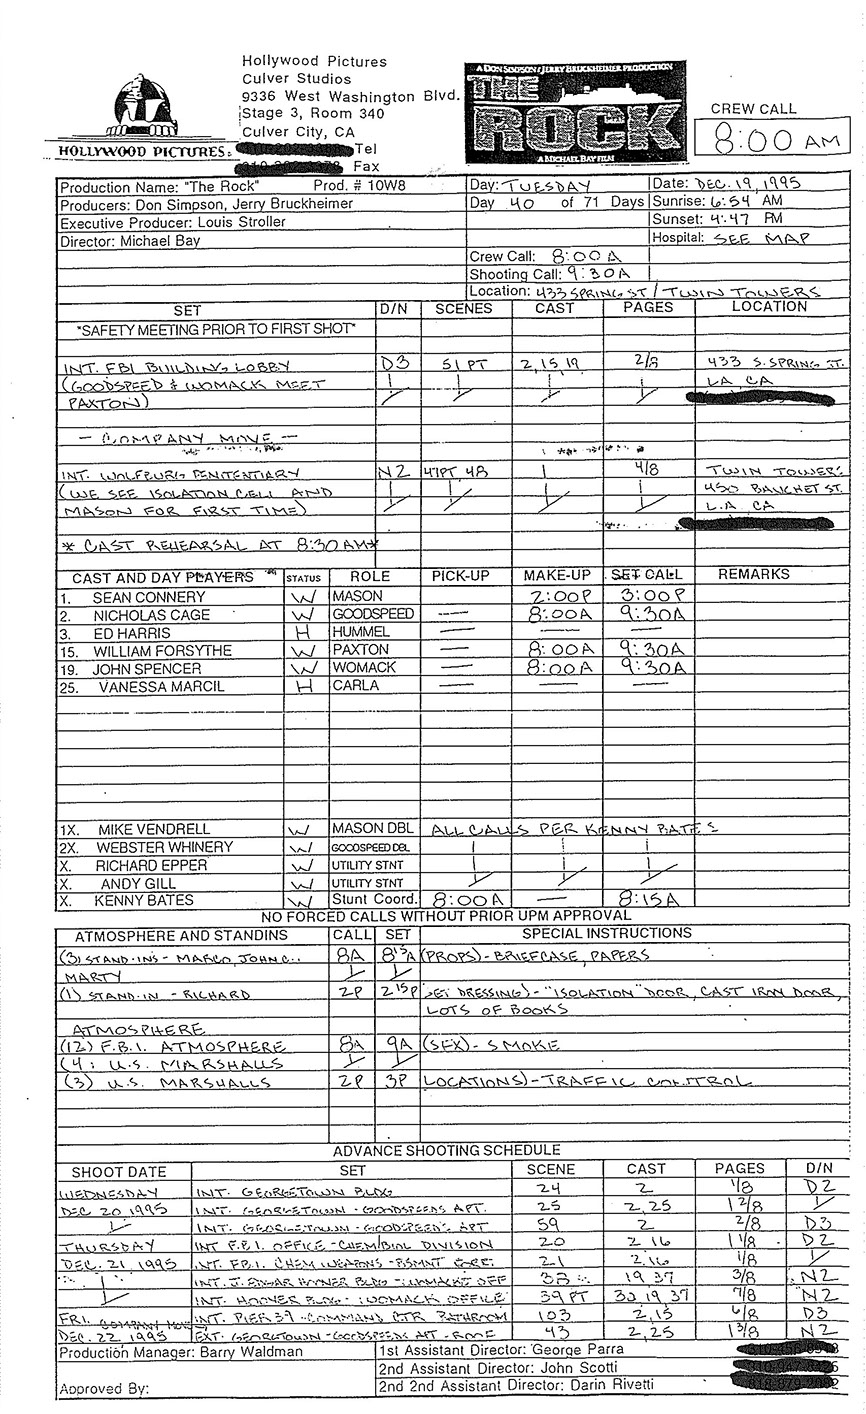 Hollywood Pictures
Culver Studios
9336 West Washington Blvd.
Stage 3, Room 340
Culver City, CA
Tel
Fax
HOLLYWOOD PICTURES
A DON SIMPSON/JERRY BRUCKHEIMER PRODUCTION
THE ROCK
A MICHAEL BAY FILM
CREW CALL
8:00 AM
Production Name: "The Rock" Prod. # 10W8 Day: TUESDAY Date: DEC. 19, 1995
Producers: Don Simpson, Jerry Bruckheimer Day 40 of 71 Days Sunrise: 6:54 AM
Executive Producer: Louis Stroller Sunset: 4:47 PM
Director: Michael Bay Hospital: SEE MAP
Crew Call: 8:00A
Shooting Call: 9:30A
Location: 433 SPRING ST / TWIN TOWERS
SET D/N SCENES CAST PAGES LOCATION
"SAFETY MEETING PRIOR TO FIRST SHOT"
INT. FBI BUILDING LOBBY D3 51 PT 2, 15, 19 2/8 433 S. SPRING ST.
(GOODSPEED & WOMACK MEET LA CA
PAXTON)
- COMPANY MOVE -
INT. WOLFBURG PENITENTIARY N2 47PT, 48 1 4/8 TWIN TOWERS
(WE SEE ISOLATION CELL AND 450 BAUCHET ST.
MASON FOR FIRST TIME) L.A CA
* CAST REHEARSAL AT 8:30 AM *
CAST AND DAY PLAYERS STATUS ROLE PICK-UP MAKE-UP SET CALL REMARKS
1. SEAN CONNERY W MASON 2:00P 3:00P
2. NICHOLAS CAGE W GOODSPEED — 8:00A 9:30A
3. ED HARRIS H HUMMEL — — —
15. WILLIAM FORSYTHE W PAXTON — 8:00A 9:30A
19. JOHN SPENCER W WOMACK — 8:00A 9:30A
25. VANESSA MARCIL H CARLA — — —
1X. MIKE VENDRELL W MASON DBL ALL CALLS PER KENNY BATES
2X. WEBSTER WHINERY W GOODSPEED DBL
X. RICHARD EPPER W UTILITY STNT
X. ANDY GILL W UTILITY STNT
X. KENNY BATES W Stunt Coord. 8:00A — 8:15A
NO FORCED CALLS WITHOUT PRIOR UPM APPROVAL
ATMOSPHERE AND STANDINS CALL SET SPECIAL INSTRUCTIONS
(3) STAND-INS - MARCO, JOHN C.. 8A 8 15A (PROPS) - BRIEFCASE, PAPERS
MARTY
(1) STAND-IN - RICHARD 2P 2 15P SET DRESSING) - "ISOLATION" DOOR, CAST IRON DOOR,
LOTS OF BOOKS
ATMOSPHERE
(12) F.B.I. ATMOSPHERE 8A 9A (SFX) - SMOKE
(4) U.S. MARSHALLS
(3) U.S. MARSHALLS 2P 3P LOCATIONS) - TRAFFIC CONTROL
ADVANCE SHOOTING SCHEDULE
SHOOT DATE SET SCENE CAST PAGES D/N
WEDNESDAY INT. GEORGETOWN BLDG 24 2 1/8 D2
DEC 20 1995 INT. GEORGETOWN - GOODSPEEDS APT. 25 2,25 1 2/8
INT. GEORGETOWN - GOODSPEED'S APT 59 2 2/8 D3
THURSDAY INT F.B.I. OFFICE - CHEM/BIOL DIVISION 20 2 16 1 1/8 D2
DEC. 21 1995 INT. F.B.I. CHEM WEAPONS - BSMNT 21 2,16 1/8
INT. J. EDGAR HOOVER BLDG - WOMACKS OFF 38 19 37 3/8 N2
INT. HOOVER BLDG - WOMACK OFFICE 39 PT 19 37 7/8 N2
FRI. COMPANY MOVE INT. PIER 39 - COMMAND CTR BATHROOM 103 2,15 6/8 D3
DEC. 22 1995 EXT. GEORGETOWN - GOODSPEEDS APT - ROOF 43 2,25 1 3/8 N2
Production Manager: Barry Waldman 1st Assistant Director: George Parra
2nd Assistant Director: John Scotti
Approved By: 2nd 2nd Assistant Director: Darin Rivetti